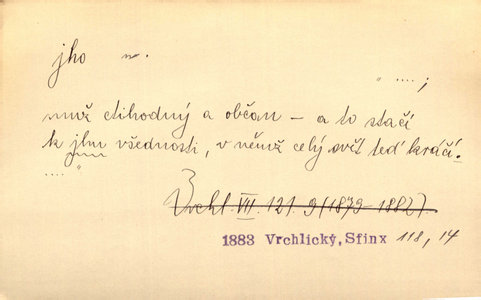 jho n.
" .... ;
muž ctihodný a občan – a to stačí
k jhu všednosti, v němž celý svět teď kráčí.
.... "
Vrchl. VII. 121. 9 (1879–1882).
1883 Vrchlický, Sfinx 118, 14